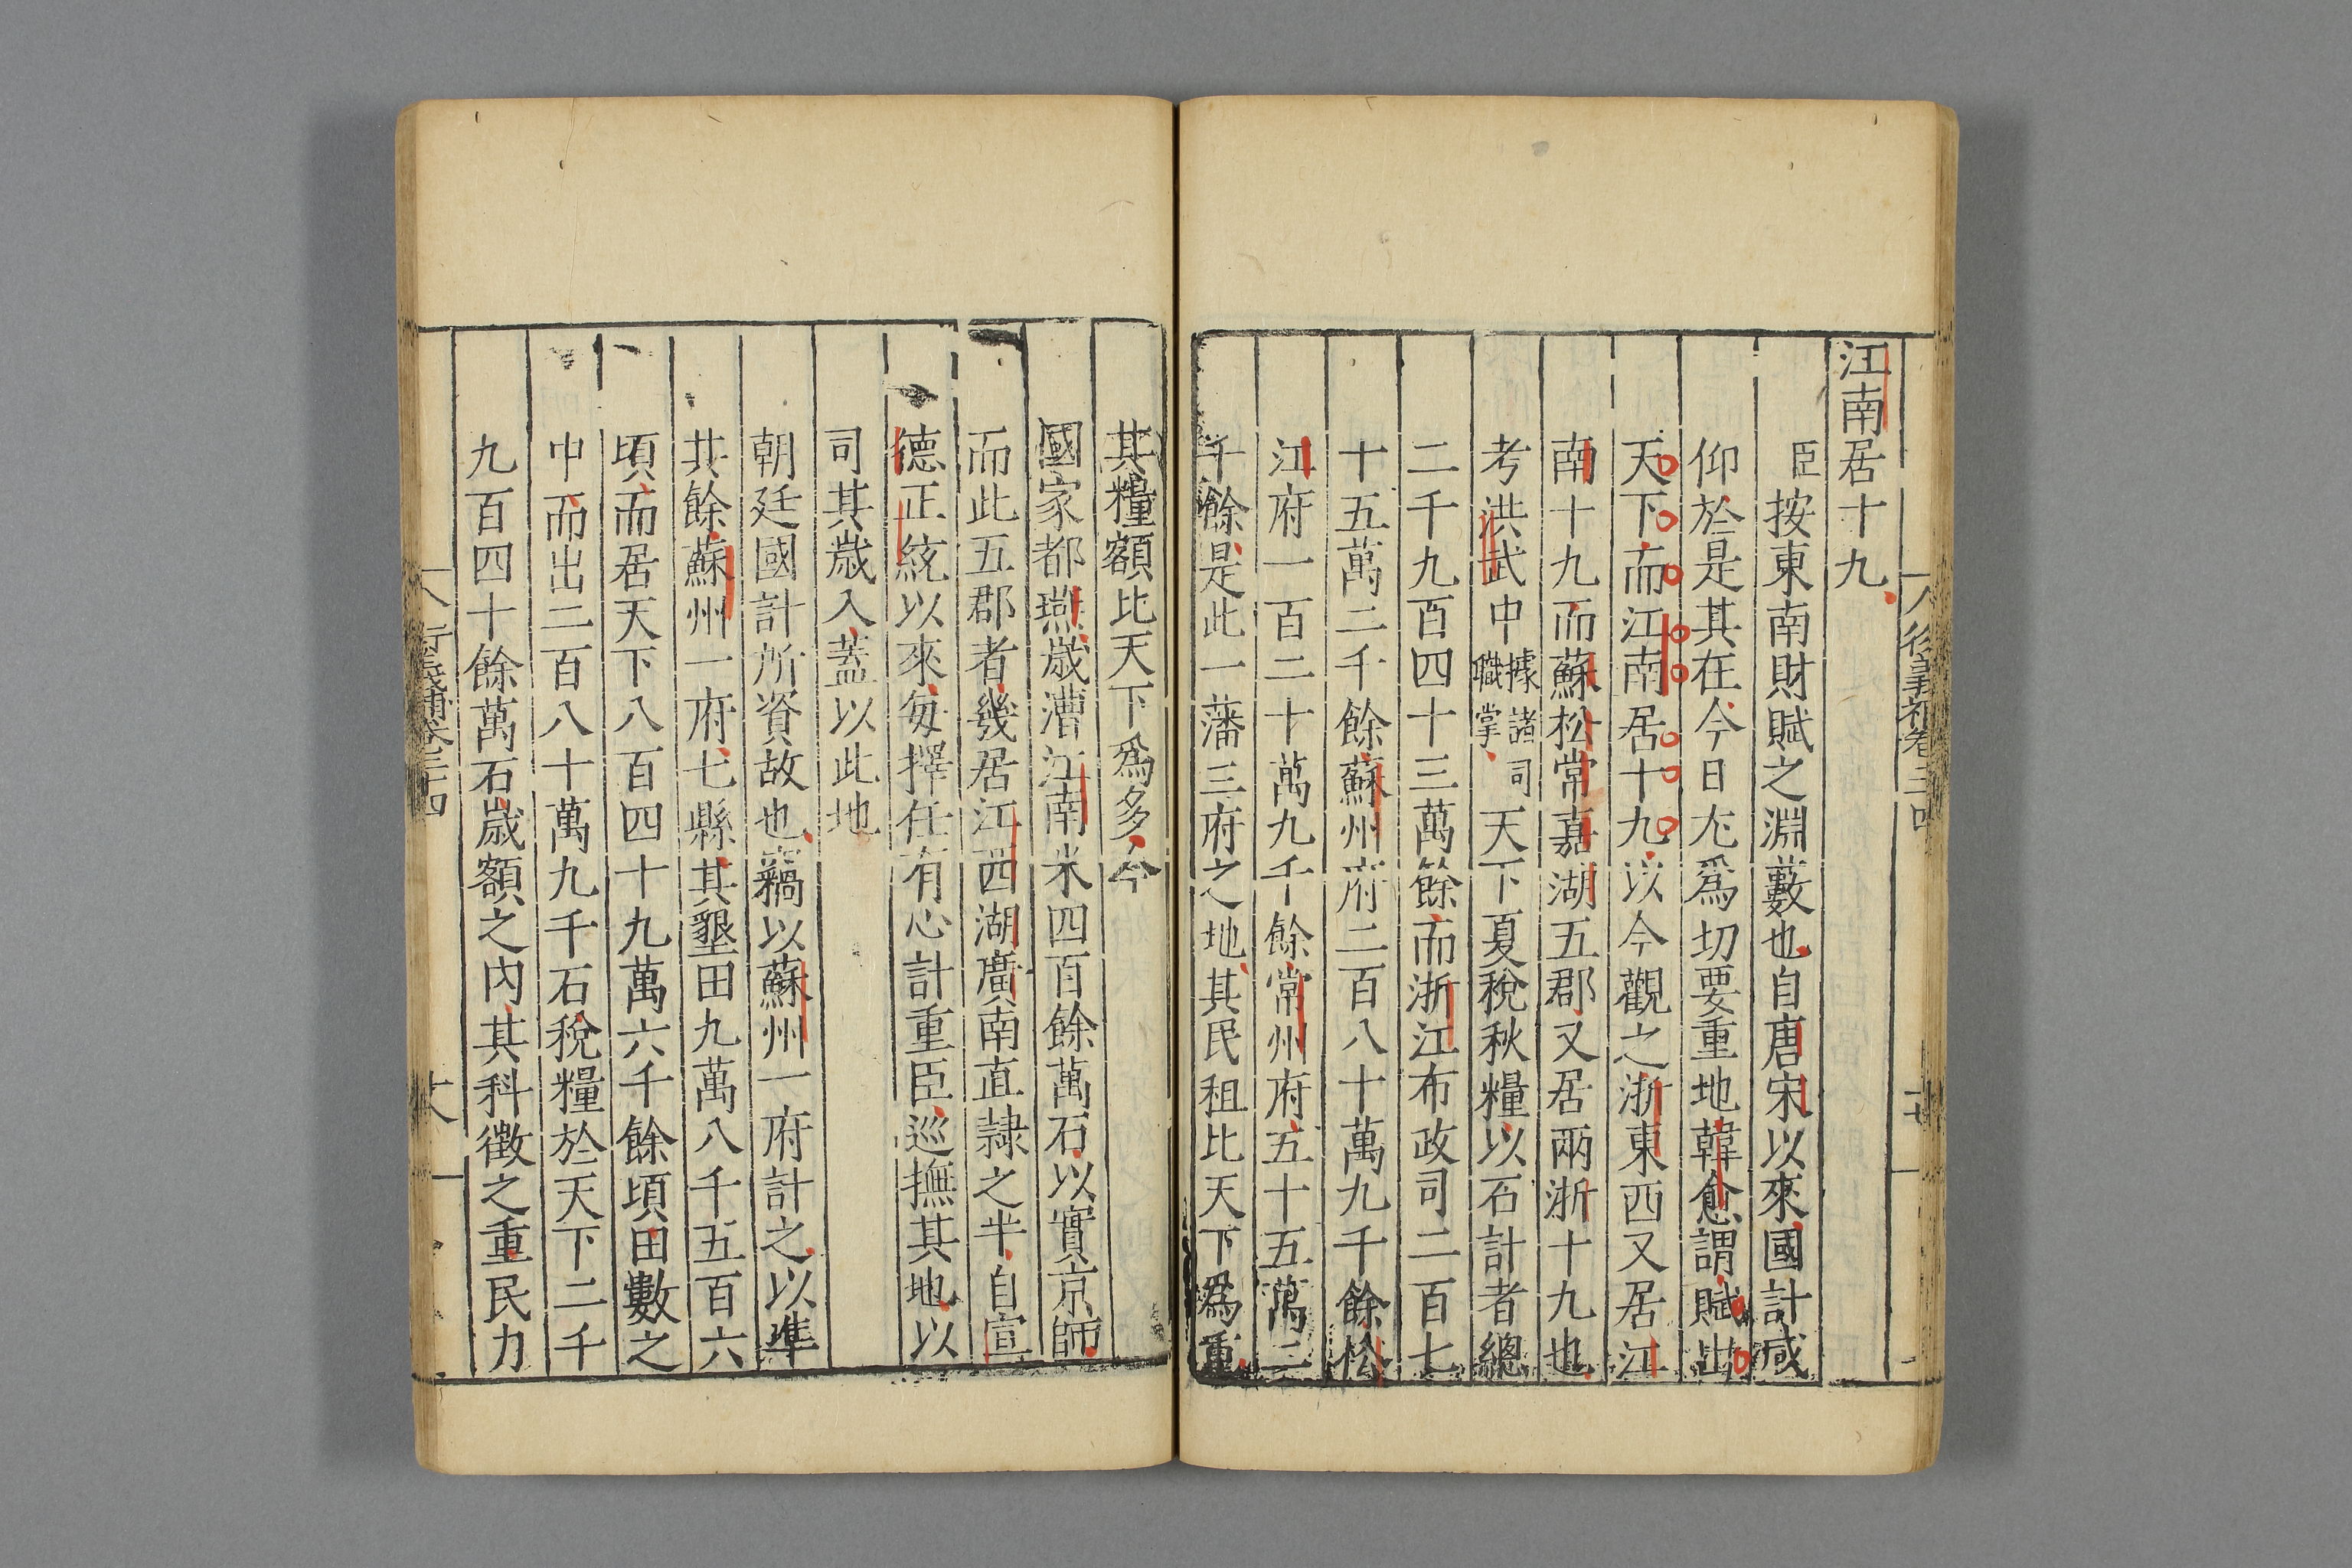 江南居十九
臣按東南財賦之淵藪也自唐宋以來國計咸
仰於是其在今日尤爲切要重地韓愈謂賦出
天下而江南居十九以今觀之浙東西又居江
南十九而蘇松常嘉湖五郡又居兩浙十九也
考洪武中據諸司職掌天下夏稅秋糧以石計者總
二千九百四十三萬餘而浙江布政司二百七
十五萬二千餘蘇州府二百八十萬九千餘松
江府一百二十萬九千餘常州府五十五萬二
千餘是此一藩三府之地其民租比天下爲重
其糧額比天下爲多今
國家都燕歲漕江南米四百餘萬石以實京師
而此五郡者幾居江西湖廣南直隸之半自宣
德正統以來每擇任有心計重臣巡撫其地以
司其歲入蓋以此地
朝廷國計所資故也竊以蘇州一府計之以準
其餘蘇州一府七縣其墾田九萬八千五百六
頃而居天下八百四十九萬六千餘頃田數之
中而出二百八十萬九千石稅糧於天下二千
九百四十餘萬石歲額之內其科徵之重民力